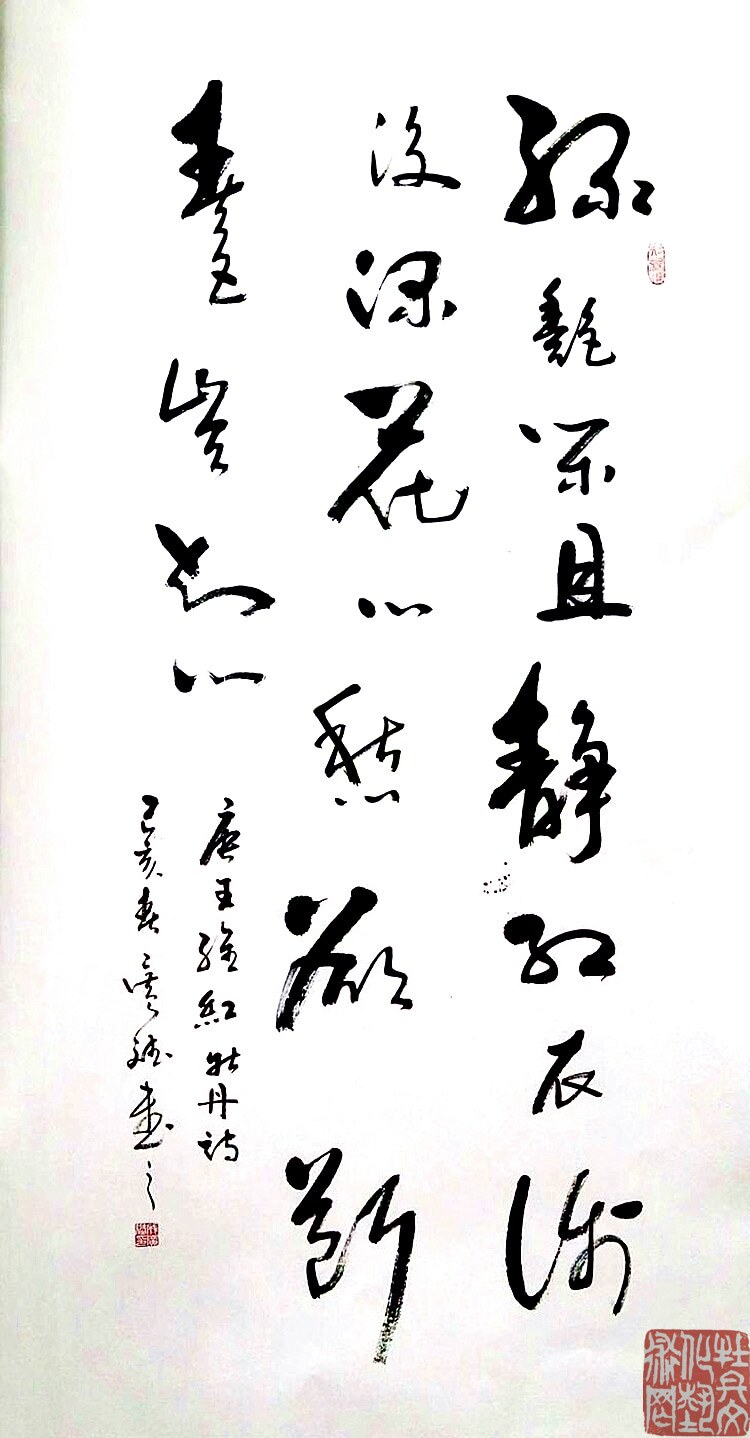 綠艷閑且靜紅衣淺
復深花心愁欲斷
春色豈知心
唐王維紅牡丹詩
己亥春書之
牡丹文
化藝
術网